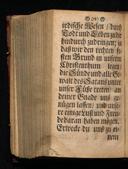 irdische Wesen / durch
Tod und Leben zu dir
hindurch zudringen; is
daß wir den rechten fe-
sten Grund in unserm
Christenthum legen /
die Sünde und alle Ge-
walt des Satans unter
unsre Füße treten / an
deiner Gnade uns ge-
nügen lassen / und
unsre einige Lust und Freu-
de daran haben mögen.
Erwecke du uns zu ei-
nem